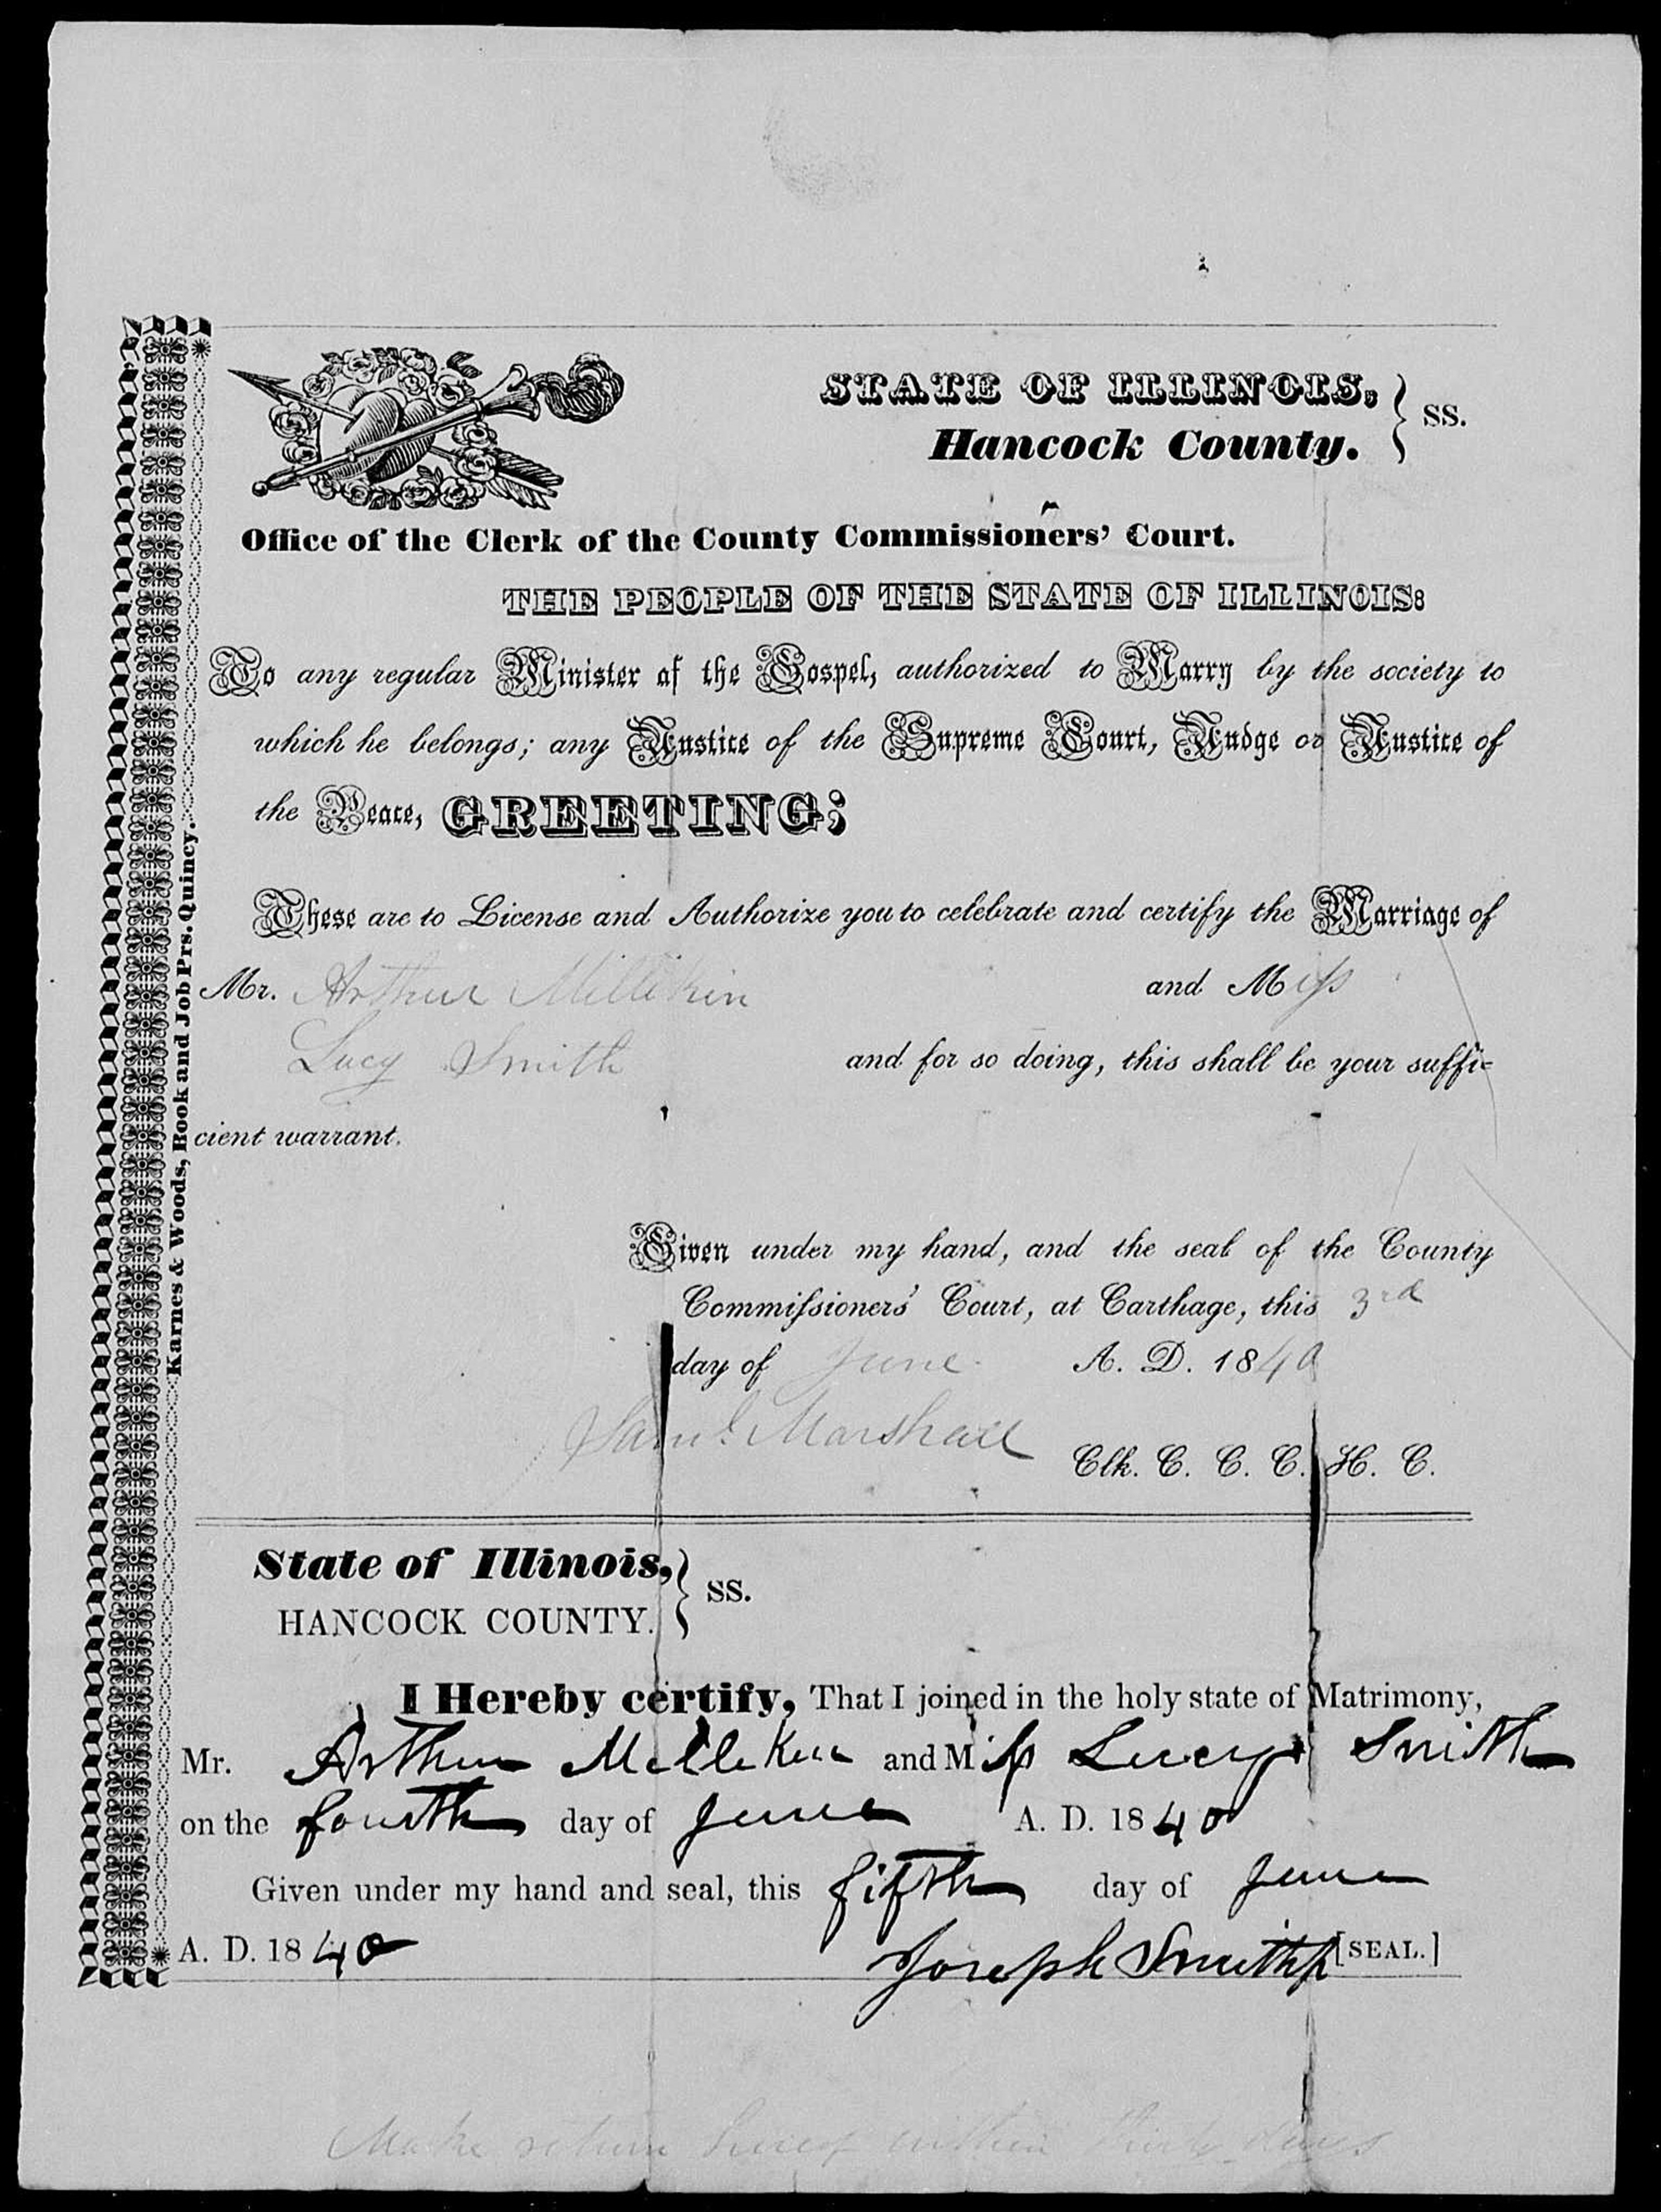 STATE OF ILLINOIS, } SS.
Hancock County.
Office of the Clerk of the County Commissioners' Court.
THE PEOPLE OF THE STATE OF ILLINOIS:
To any regular Minister af the Gospel, authorized to Marry by the society to
which he belongs; any Justice of the Supreme Court, Judge or Justice of
the Peace, GREETING;
These are to License and Authorize you to celebrate and certify the Marriage of
Mr. Arthur Millikin and Miss
Lucy Smith and for so doing, this shall be your suffi-
cient warrant.
Given under my hand, and the seal of the County
Commissioners' Court, at Carthage, this 3rd
day of June A. D. 1840
Saml. Marshall Clk. C. C. C. H. C.
State of Illinois, } SS.
HANCOCK COUNTY.
I Hereby certify, That I joined in the holy state of Matrimony,
Mr. Arthur Milliken and Miss Lucy Smith
on the fourth day of June A. D. 1840
Given under my hand and seal, this fifth day of June
A. D. 1840 Joseph Smith [SEAL.]
Make return hereof within thirty days
Karnes & Woods, Book and Job Prs. Quincy.